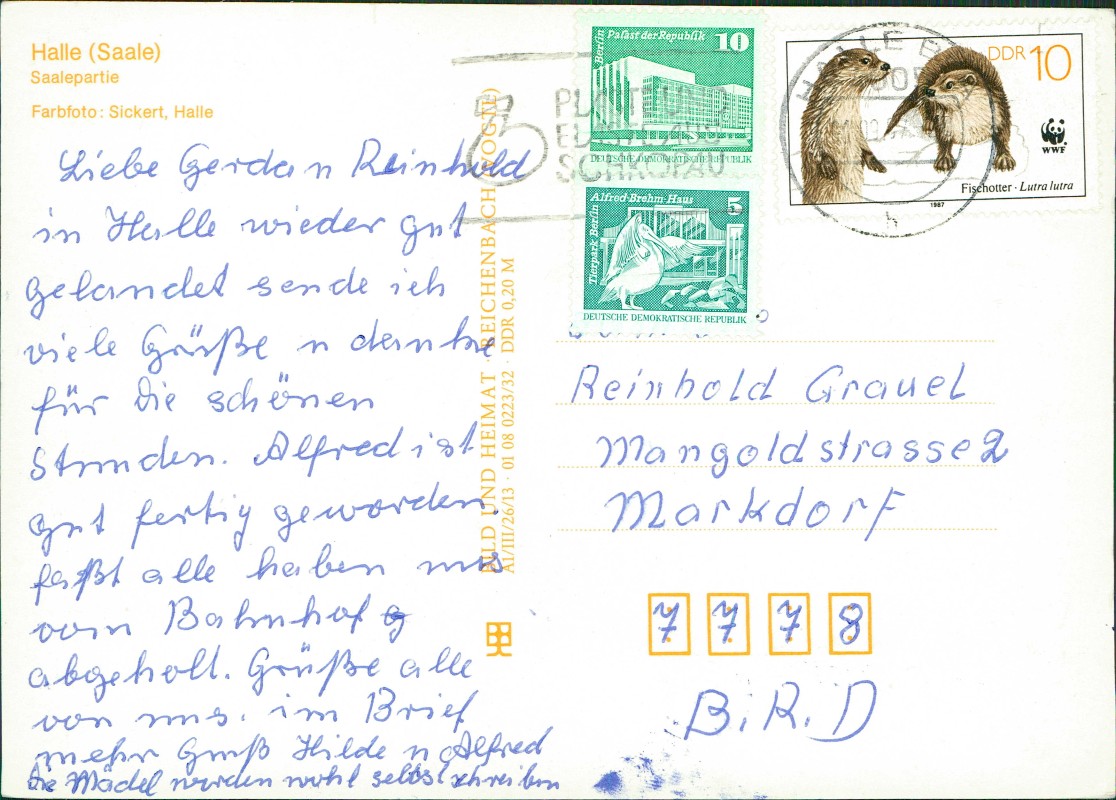 Halle (Saale)
Saalepartie
Farbfoto: Sickert, Halle
Liebe Gerda n Reinhold
in Halle wieder gut
gelandet sende ich
viele Grüße n danke
für die schönen
Stunden. Alfred ist
gut fertig geworden.
faßt alle haben uns
vom Bahnhof
abgeholt. Grüße alle
von uns. im Brief
mehr Gruß Hilde n Alfred
die Mädel werden wohl selbst schreiben
BILD UND HEIMAT · REICHENBACH (VOGTL)
A1/III/26/13 · 01 08 0223/32 · DDR 0,20 M
Berlin Palast der Republik 10
DEUTSCHE DEMOKRATISCHE REPUBLIK
Tierpark Berlin Alfred-Brehm-Haus 5
DEUTSCHE DEMOKRATISCHE REPUBLIK
DDR 10
WWF
Fischotter · Lutra lutra
1987
HALLE
PLASTE UND
ELASTE AUS
SCHKOPAU
h
Reinhold Grauel
Mangoldstrasse 2
Markdorf
7 7 7 8
B.R.D